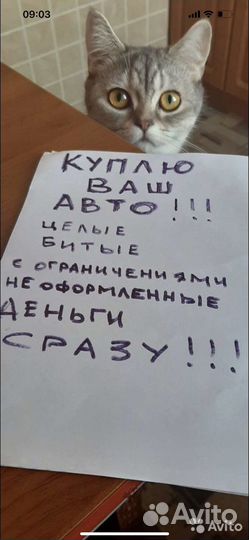 09:03
КУПЛЮ
ВАШ
АВТО!!!
ЦЕЛЫЕ
БИТЫЕ
С ОГРАНИЧЕНИЯМИ
НЕ ОФОРМЛЕННЫЕ
ДЕНЬГИ
СРАЗУ!!!
Avito
Avito